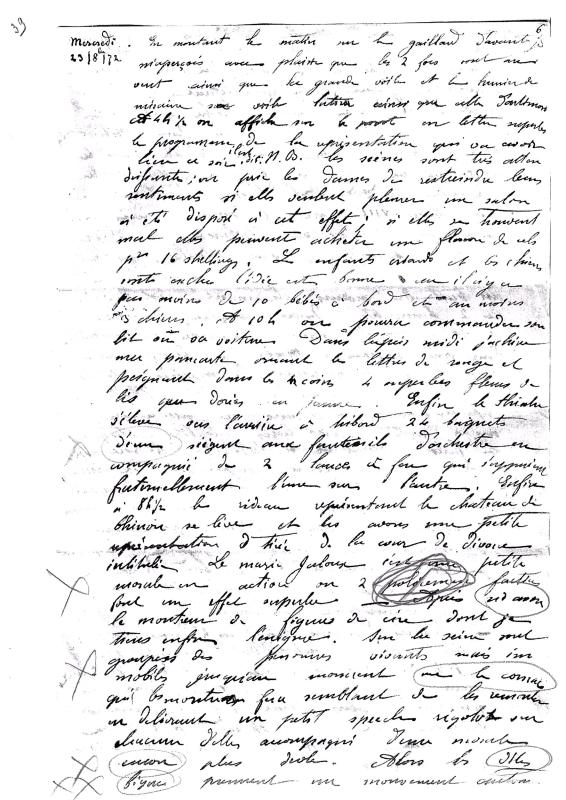 39
6
Mercredi . En montant le matin sur le gaillard d'avant je
23/8/72 m'aperçois avec plaisir que les 2 focs sont au
vent ainsi que la grande voile et la
misaine voile latine ainsi que celle d'artimon
A 4h ½ on affiche sur le en lettres superbes
le programme de la représentation qui va avoir
lieu ce soir, N.B. les scènes sont très atten
drissantes; on prie les dames de restreindre leurs
sentiments si elles veulent pleurer un salon
a été disposé à cet effet; si elles se trouvent
mal elles peuvent acheter un flacon de sels
pr 16 shellings. Les enfants criards et les chiens
sont exclus l'idée est bonne car il y a
pas moins de 10 bébés à bord et au moins
3 chiens. A 10h on pourra commander son
lit ou sa voiture Dans l'après midi j'achève
ma pancarte ornant les lettres de rouge et
peignant dans les coins 4 superbes fleurs de
lis dorées en jaune. Enfin le théâtre
s'élève vers l'arrière à tribord 24 baquets
d'eau siègent aux fauteuils d'orchestre en
compagnie de 2 à feu qui s'appuient
fraternellement l'une sur l'autre. Enfin
à 8h ½ le rideau représentant le chateau de
Chinon se lève et les avons une petite
représentation tirée de la cour de divorce
intitulée Le mari Jaloux c'est une petite
morale en action ou 2 faites
font un effet superbe Après
le montreur de figures de cire dont je
tiens enfin l'énigme. Sur la scène sont
groupées des personnes vivants mais im
mobiles jusqu'au moment où le cornac
qui les montre fera semblant de les remonter
en délivrant un petit speech rigolot sur
chacune d'elles accompagné d'une morale
encore plus drole. Alors les dites
figures prennent un mouvement